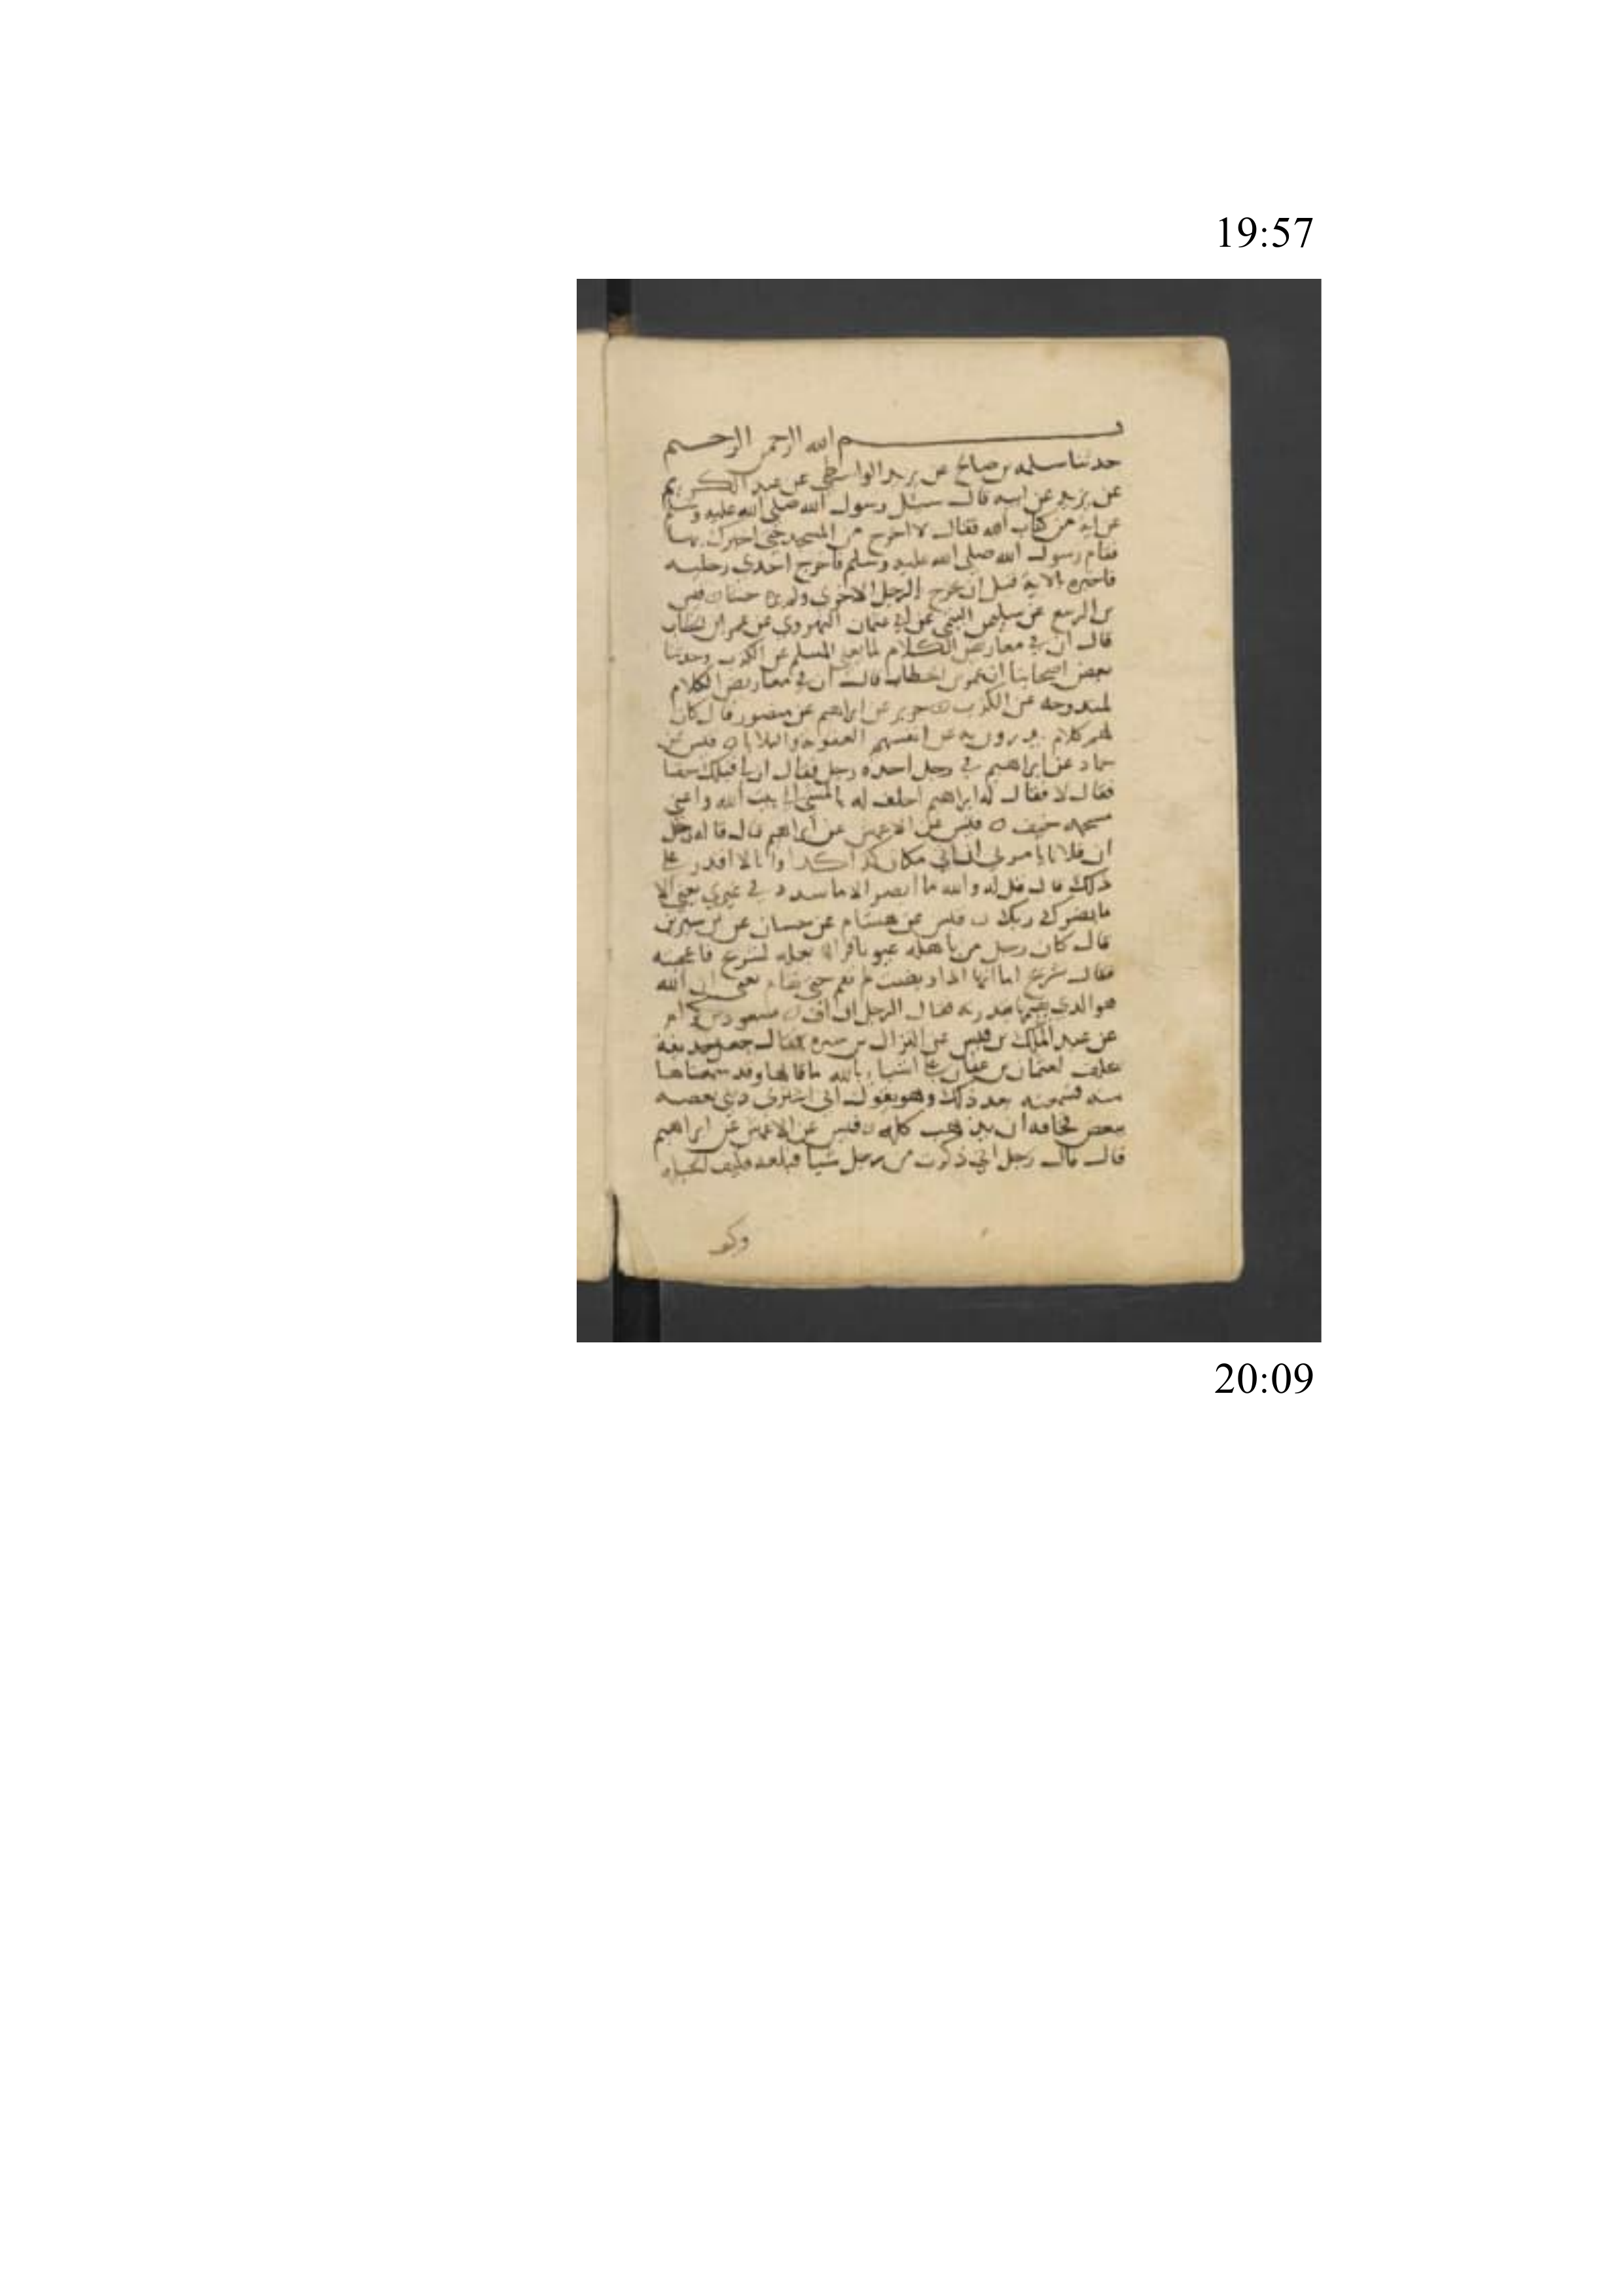 19:57
بسم الله الرحمن الرحيم
حدثنا سلمه بن صالح عن يزيد الواسطي عن عبد الكريم
عن يزيد عن ابيه قال سئل رسول الله صلي الله عليه وسلم
عن اية من كتاب الله فقال لا اخرج من المسجد حتي اخبرك بها
فقام رسول الله صلي الله عليه وسلم فاخرج احدي رجليه
فاخبره بالاية قبل ان يخرج الرجل الاخري قيس
بن الربيع عن سليمن التيمي عن ابي عثمان النهروي عن عمر ابن الخطاب
قال ان في معاريض الكلام لما يغني المسلم عن الكذب وحدثنا
بعض اصحابنا ان عمر بن الخطاب قال ان في معاريض الكلام
لمندوحه عن الكذب جرير عن ابراهيم عن منصور قال كان
لهم كلام يدرون به عن انفسهم العقوبة والبلايا قيس عن
حماد عن ابراهيم في رجل اخذه رجل فقال ان لي قبلك حقا
فقال لا فقال له ابراهيم احلف له بالمشي الي بيت الله واعني
مسجد قيس عن الاعمش عن ابراهيم قال قال له رجل
ان فلانا يامرني ان اتي مكان كذا كذا وانا لا اقدر علي
ذلك قال قل له والله ما ابصر الا ما سدد في غيري يعني الا
ما بصرك ربك قيس عن هشام عن حسان عن بن سيرين
قال كان رجل من باهله عيونا فراي بغله لشريح فاعجبته
فقال شريح اما انها اذا ربضت لم تقم حتي تقام يعني ان الله
هو الذي يقيمها بقدرته فقال الرجل اف اف مسعود بن كرام
عن عبد الملك بن قيس عن النزال بن سبره قال جعل حذيفة
يحلف لعثمان بن عفان علي اشياء بالله ما قالها وقد سمعناها
منه فسمعته بعد ذلك وهو يقول اني اشتري ديني بعضه
ببعض مخافه ان يذهب كله قيس عن الاعمش عن ابراهيم
قال قال رجل اني ذكرت من رجل شيا فبلغه فكيف
20:09